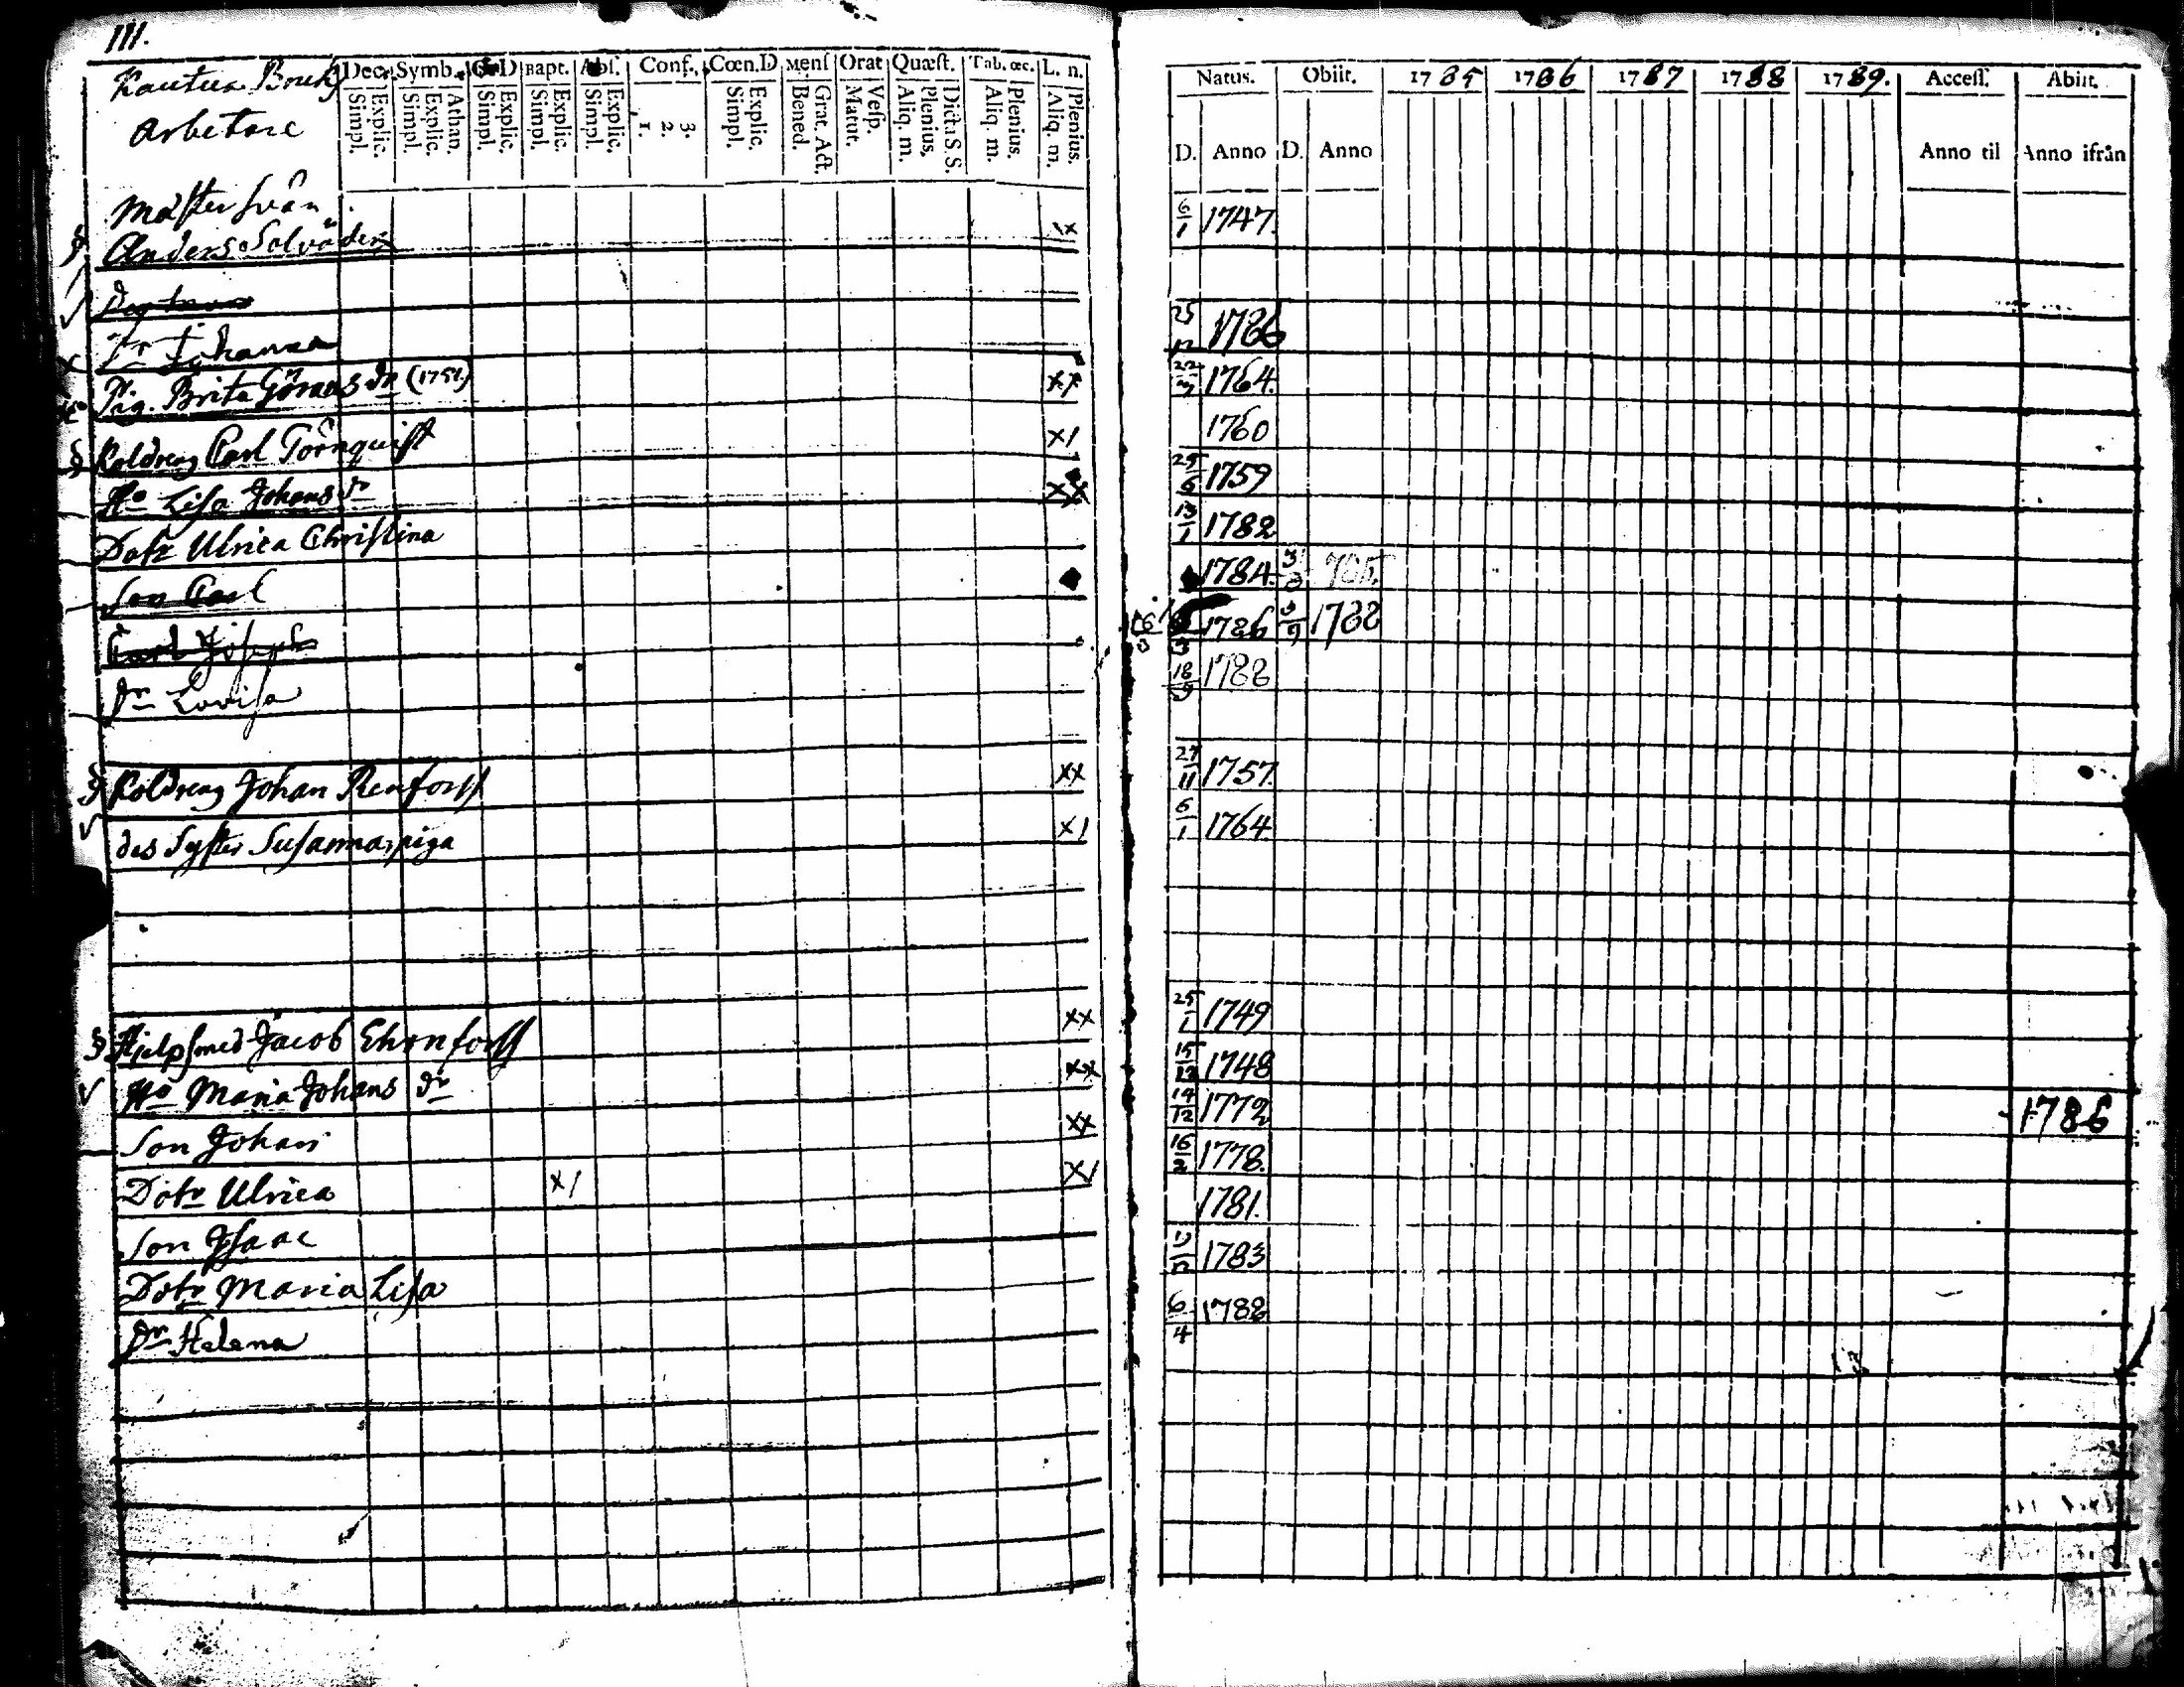 111.
Kautua Bruks
Arbetare
Dec. Symb. G.D Bapt. Abs. Conf. Cœn.D Mens Orat Quæst. Tab. œc. L. n.
Simpl. Explic. Simpl. Explic. Athan. Simpl. Explic. Simpl. Explic. Simpl. Explic. 1. 2. 3. Simpl. Explic. Bened. Grat. Act. Matut. Vesp. Aliq. m. Plenius. Dicta S.S. Aliq. m. Plenius. Aliq. m. Plenius.
Natus. Obiit. 1785 1786 1787 1788 1789. Access. Abiit.
D. Anno D. Anno Anno til Anno ifrån
Mäster
Anders xx 6/1 1747.
Dr Johanna 25 1786
Pig. Brita Görans dr (1751) xx 22 1764.
Koldreng Carl Törnquist x1 1760
Ho Lisa Johans dr xx 25/6 1759
Dotr Ulrica Christina 13/1 1782
Son Carl 1784. 785.
Carl Joseph 1786 1788
Dr Lovisa 18/9 1788
Koldreng Johan Renforss xx 27/11 1757.
des Syster Susanna, piga x1 6/1 1764.
Hjelpsmed Jacob Ehrnforss xx 25/1 1749
Ho Maria Johans dr xx 15/12 1748
Son Johan xx 14/12 1772 1786
Dotr Ulrica x1 x1 16/2 1778.
Son Isaac 1781.
Dotr Maria Lisa 1783
Dr Helena 6/4 1788